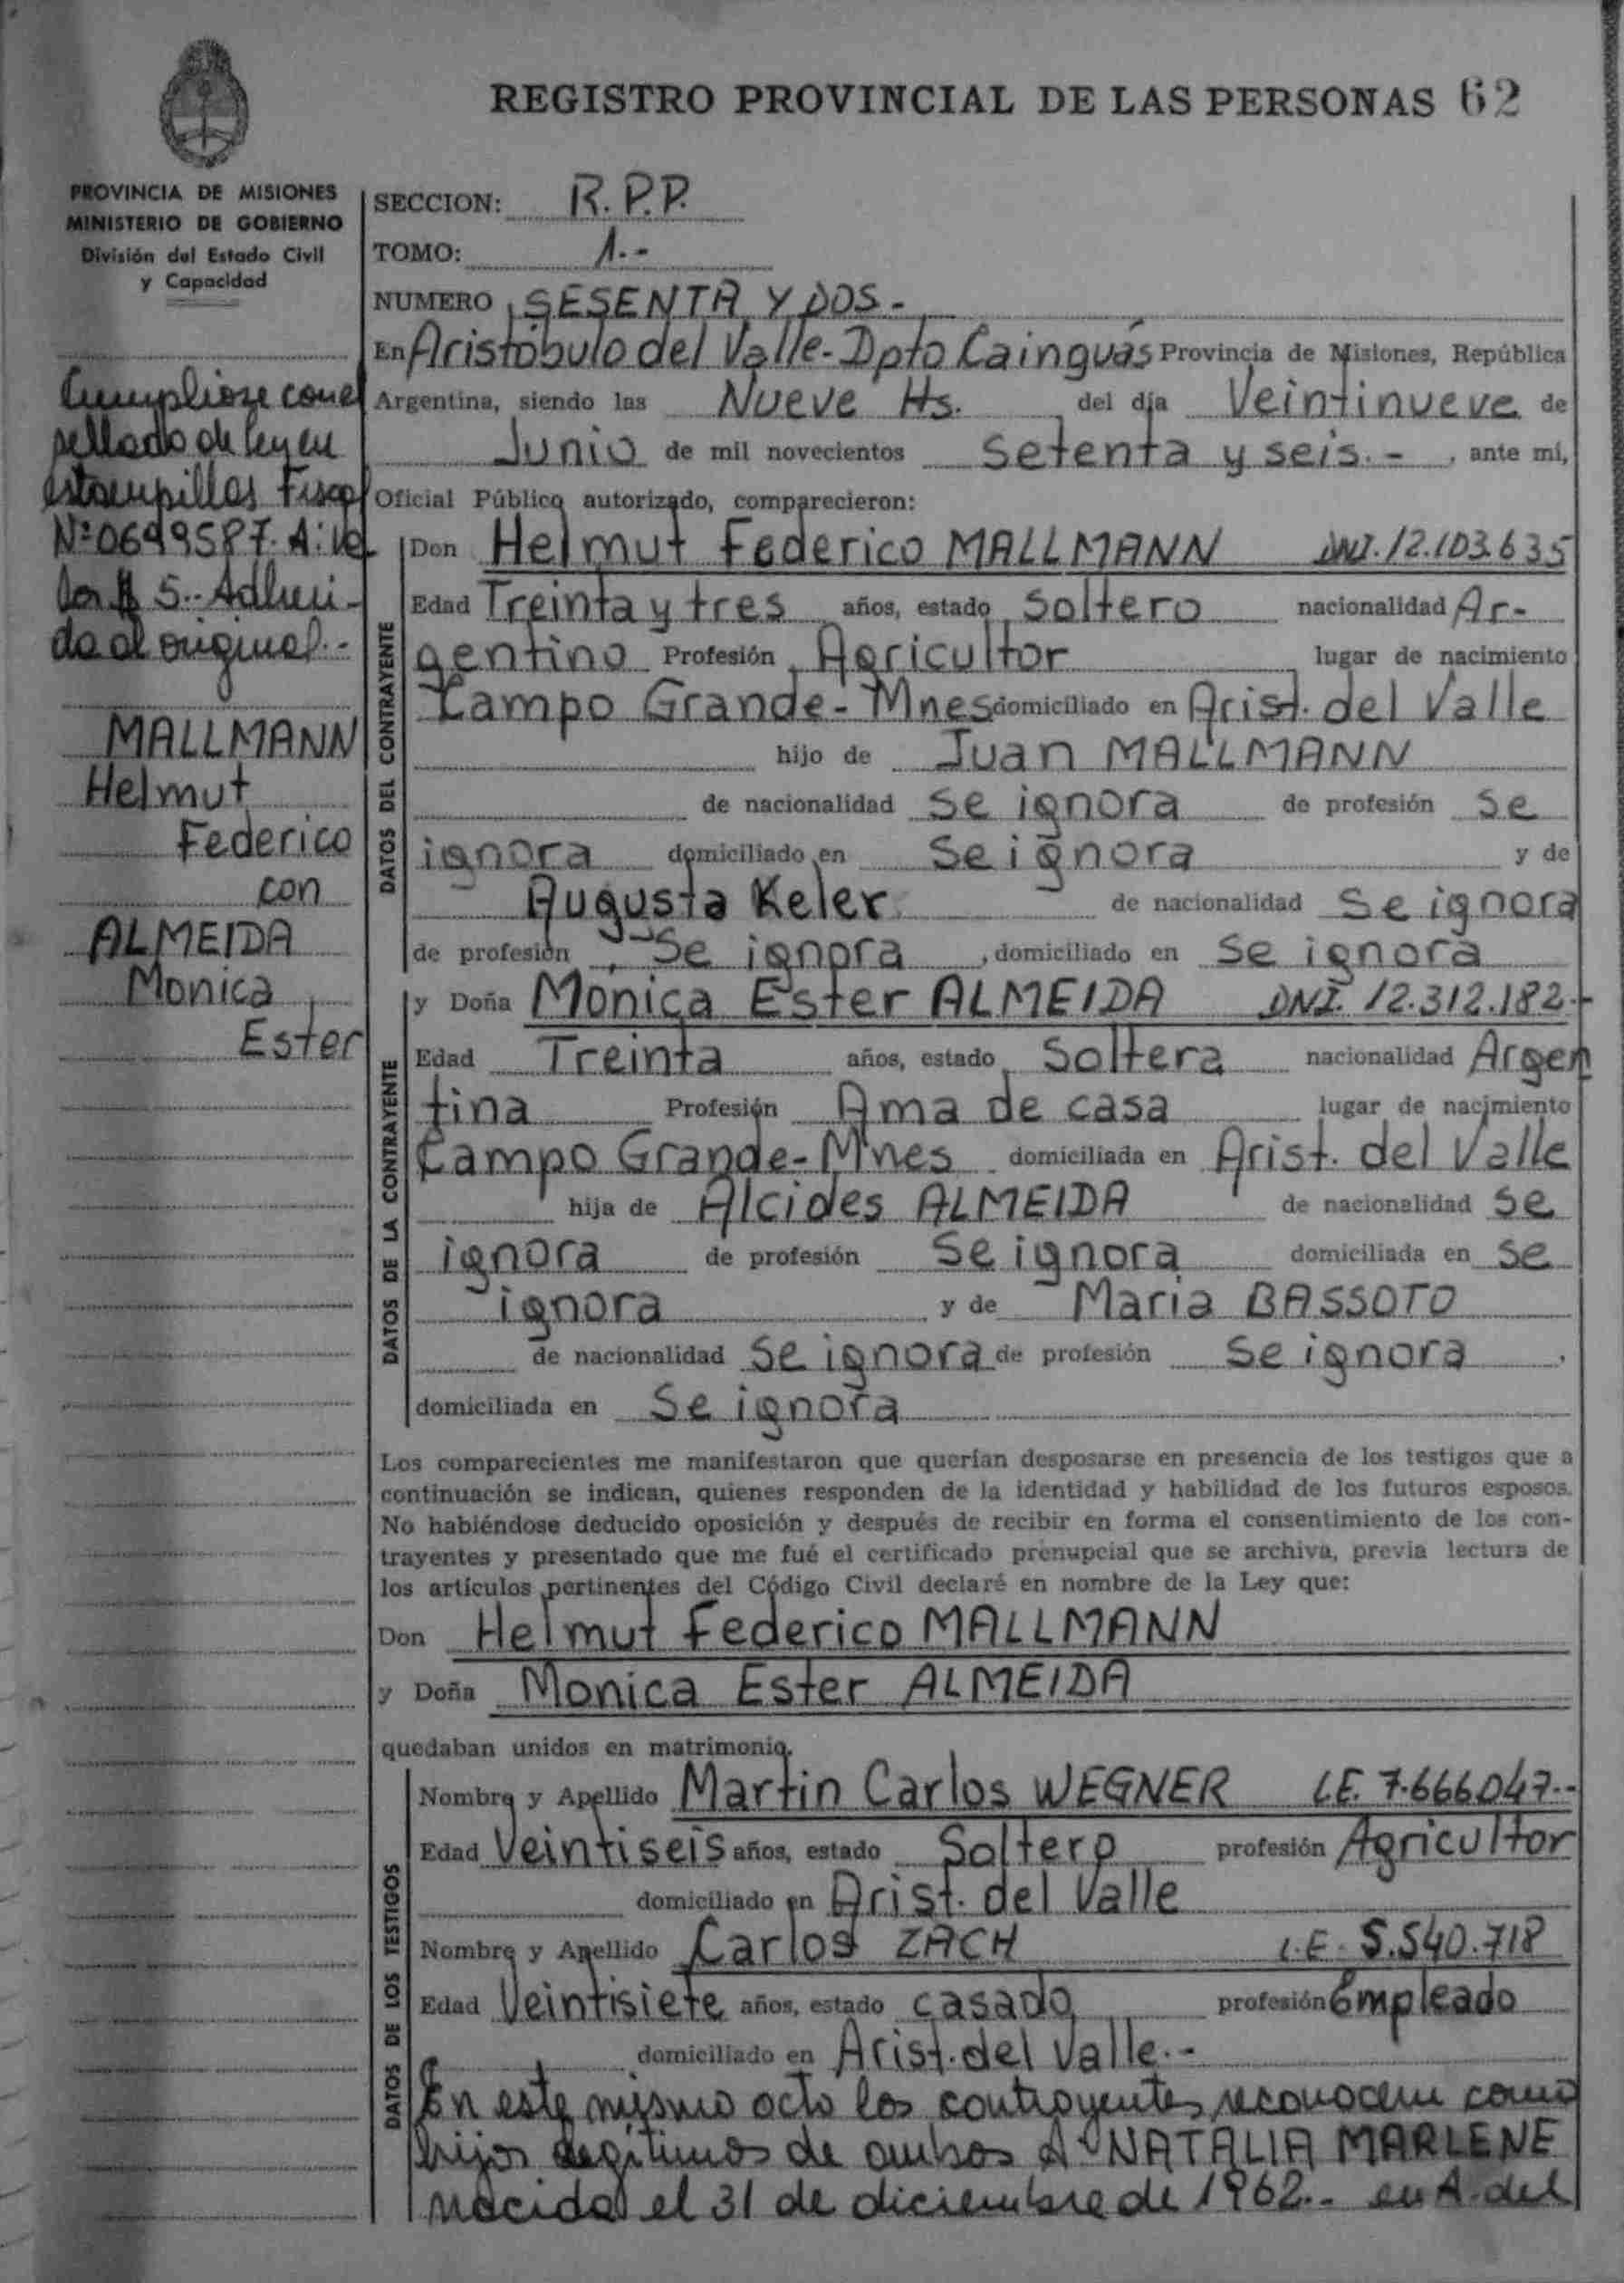 REGISTRO PROVINCIAL DE LAS PERSONAS 62
PROVINCIA DE MISIONES
MINISTERIO DE GOBIERNO
División del Estado Civil
y Capacidad
Cumpliose con el
sellado de ley en
estampillas Fiscal
Nº 0649587. A: Va
lor $ 5.- Adheri-
da al original.-
MALLMANN
Helmut
Federico
con
ALMEIDA
Monica
Ester
SECCION: R.P.P.
TOMO: 1.-
NUMERO SESENTA Y DOS.-
En Aristóbulo del Valle- Dpto Cainguás Provincia de Misiones, República
Argentina, siendo las Nueve Hs. del día Veintinueve de
Junio de mil novecientos setenta y seis.- , ante mí,
Oficial Público autorizado, comparecieron:
DATOS DEL CONTRAYENTE
Don Helmut Federico MALLMANN DNI. 12.103.635
Edad Treinta y tres años, estado Soltero nacionalidad Ar-
gentino Profesión Agricultor lugar de nacimiento
Campo Grande- Mnes domiciliado en Arist. del Valle
hijo de Juan MALLMANN
de nacionalidad se ignora de profesión se
ignora domiciliado en Se ignora y de
Augusta Keler de nacionalidad Se ignora
de profesión Se ignora , domiciliado en Se ignora
DATOS DE LA CONTRAYENTE
y Doña Monica Ester ALMEIDA DNI. 12.312.182.-
Edad Treinta años, estado Soltera nacionalidad Argen
tina Profesión Ama de casa lugar de nacimiento
Campo Grande- Mnes domiciliada en Arist. del Valle
hija de Alcides ALMEIDA de nacionalidad Se
ignora de profesión Se ignora domiciliada en Se
ignora y de Maria BASSOTO
de nacionalidad Se ignora de profesión Se ignora ,
domiciliada en Se ignora
Los comparecientes me manifestaron que querían desposarse en presencia de los testigos que a
continuación se indican, quienes responden de la identidad y habilidad de los futuros esposos.
No habiéndose deducido oposición y después de recibir en forma el consentimiento de los con-
trayentes y presentado que me fué el certificado prenupcial que se archiva, previa lectura de
los artículos pertinentes del Código Civil declaré en nombre de la Ley que:
Don Helmut Federico MALLMANN
y Doña Monica Ester ALMEIDA
quedaban unidos en matrimonio.
DATOS DE LOS TESTIGOS
Nombre y Apellido Martin Carlos WEGNER L.E. 7.666047.-
Edad Veintiseis años, estado Soltero profesión Agricultor
domiciliado en Arist. del Valle
Nombre y Apellido Carlos ZACH L.E. 5.540.718
Edad Veintisiete años, estado casado profesión Empleado
domiciliado en Arist. del Valle.-
En este mismo acto los contrayentes reconocen como
hijos legítimos de ambos a NATALIA MARLENE
nacida el 31 de diciembre de 1962.- en A. del